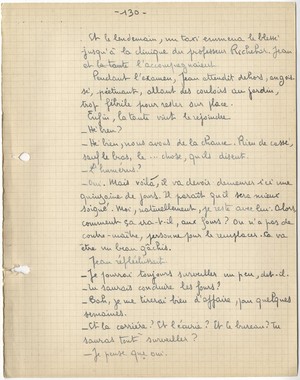 - 130 -
Et le lendemain, un taxi emmena le blessé
jusqu'à la clinique du professeur Recchelor. Jean
et la tante l'accompagnaient.
Pendant l'examen, Jean attendit dehors, angois-
sé, piétinant, allant des couloirs au jardin,
trop fébrile pour rester sur place.
Enfin, la tante vint le rejoindre.
- Hé bien ?
- Hé bien, nous avons de la chance. Rien de cassé,
sauf le bras, le ... chose, qu'ils disent.
- L'humérus ?
- Oui. Mais voilà, il va devoir demeurer ici une
quinzaine de jours. Il paraît qu'il sera mieux
soigné. Moi, naturellement, je reste avec lui. Alors
comment ça ira-t-il, aux fours ? On n'a pas de
contre-maître, personne pour le remplacer. Ca va
être un beau gâchis.
Jean réfléchissait
- Je pourrai toujours surveiller un peu, dit-il.
- Tu saurais conduire les fours ?
- Bah, je me tirerai bien d'affaire, pour quelques
semaines.
- Et la carrière ? Et l'écurie ? Et le bureau ? Tu
sauras tout surveiller ?
- Je pense que oui.